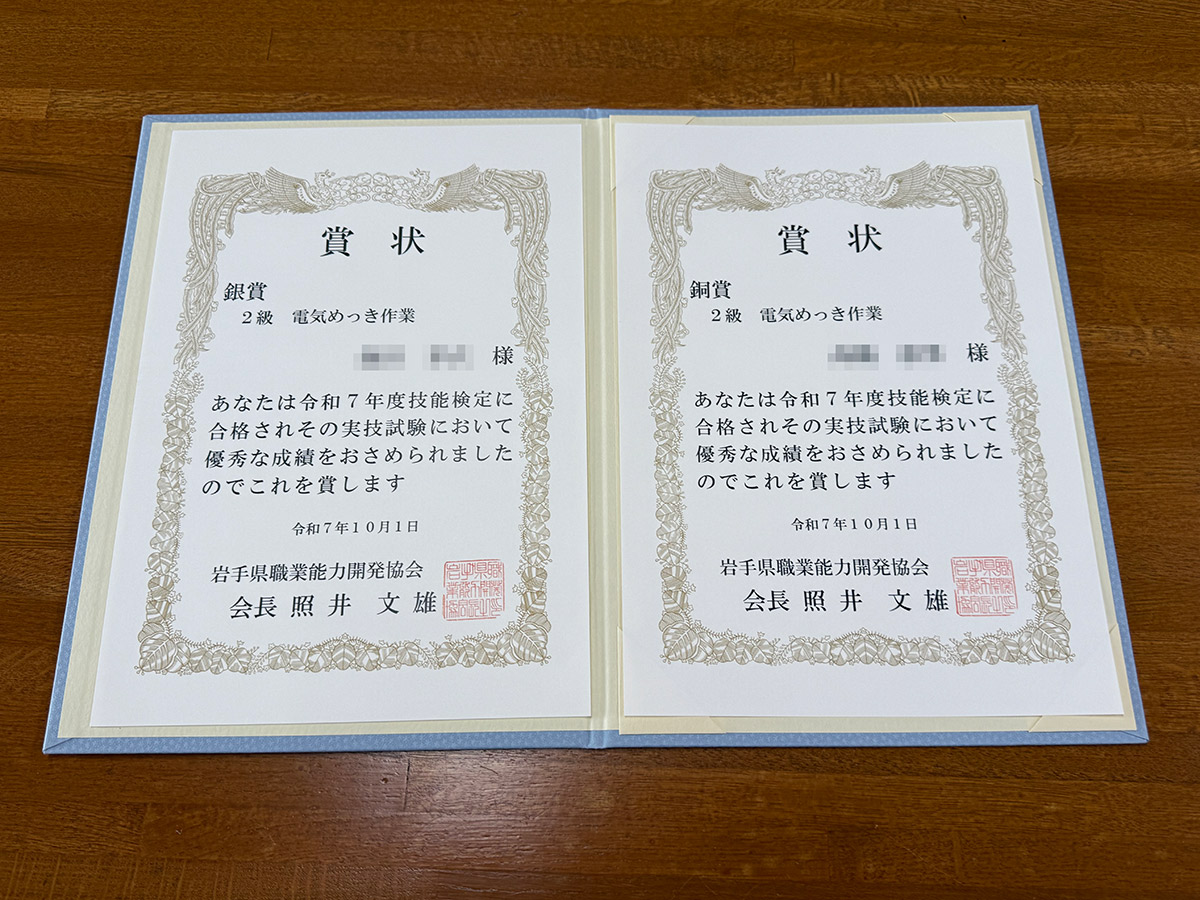 賞状
銀賞
２級　電気めっき作業
様
あなたは令和７年度技能検定に
合格されその実技試験において
優秀な成績をおさめられました
のでこれを賞します
令和７年１０月１日
岩手県職業能力開発協会
会長 照井 文雄
賞状
銅賞
２級　電気めっき作業
様
あなたは令和７年度技能検定に
合格されその実技試験において
優秀な成績をおさめられました
のでこれを賞します
令和７年１０月１日
岩手県職業能力開発協会
会長 照井 文雄